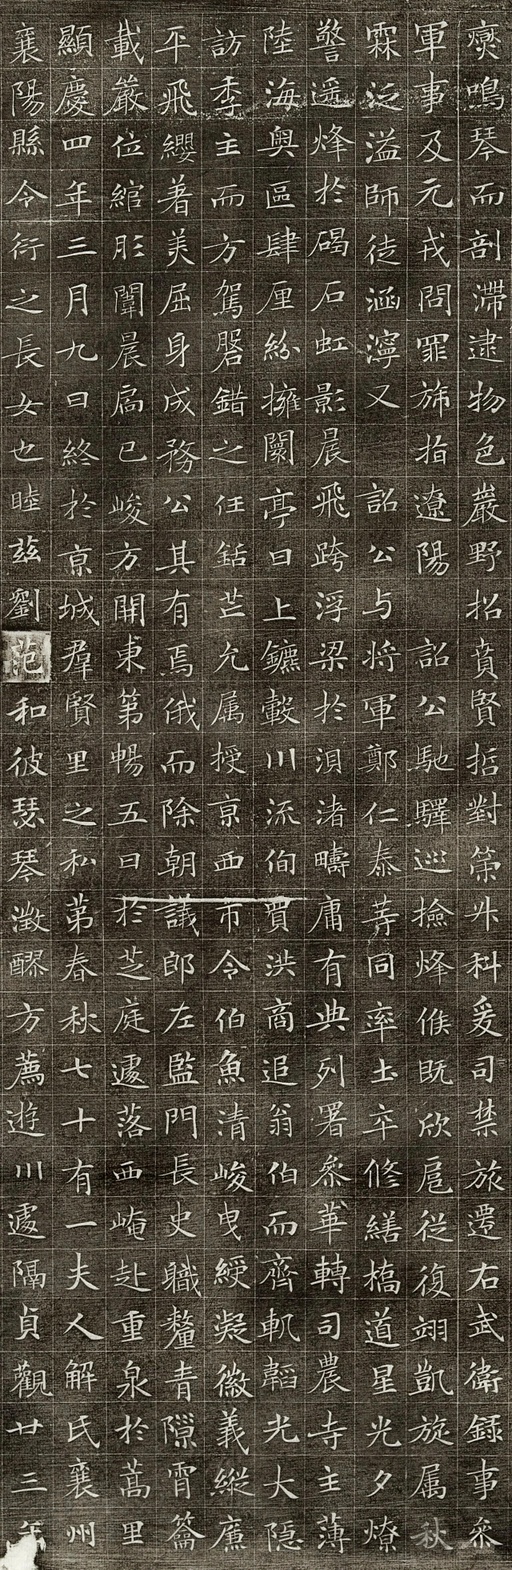 爕鳴琴而剖滯逮物色巖野招賁賢括對策升科爰司禁旅遷右武衛錄事叅
軍事及元戎問罪斾指遼陽詔公馳驛巡撿烽候既欣扈從復翊凱旋属秋
霖泛溢師徒涵濘又詔公与將軍鄭仁泰等同率士卒修繕橋道星光夕燎
警遥烽於碣石虹影晨飛跨浮梁於浿渚疇庸有典列署叅華轉司農寺主薄
陸海奥區肆厘紛擁闤亭日上鑣轂川流佝賈洪商追翁伯而齊軌韜光大隱
訪季主而方駕磐錯之任銛芒允属授亰西市令伯魚清峻曳綬凝徽義縱廉
平飛纓著美屈身成務公其有焉俄而除朝議郎左監門長史職釐青隙霄籥
載嚴位綰彤闈晨扄已峻方開東第暢五日於芝庭遽落西崦赴重泉於蒿里
顯慶四年三月九日終於亰城羣賢里之私第春秋七十有一夫人解氏襄州
襄陽縣令衍之長女也睦兹劉范和彼瑟琴澂醪方薦遊川遽隔貞觀廿三年